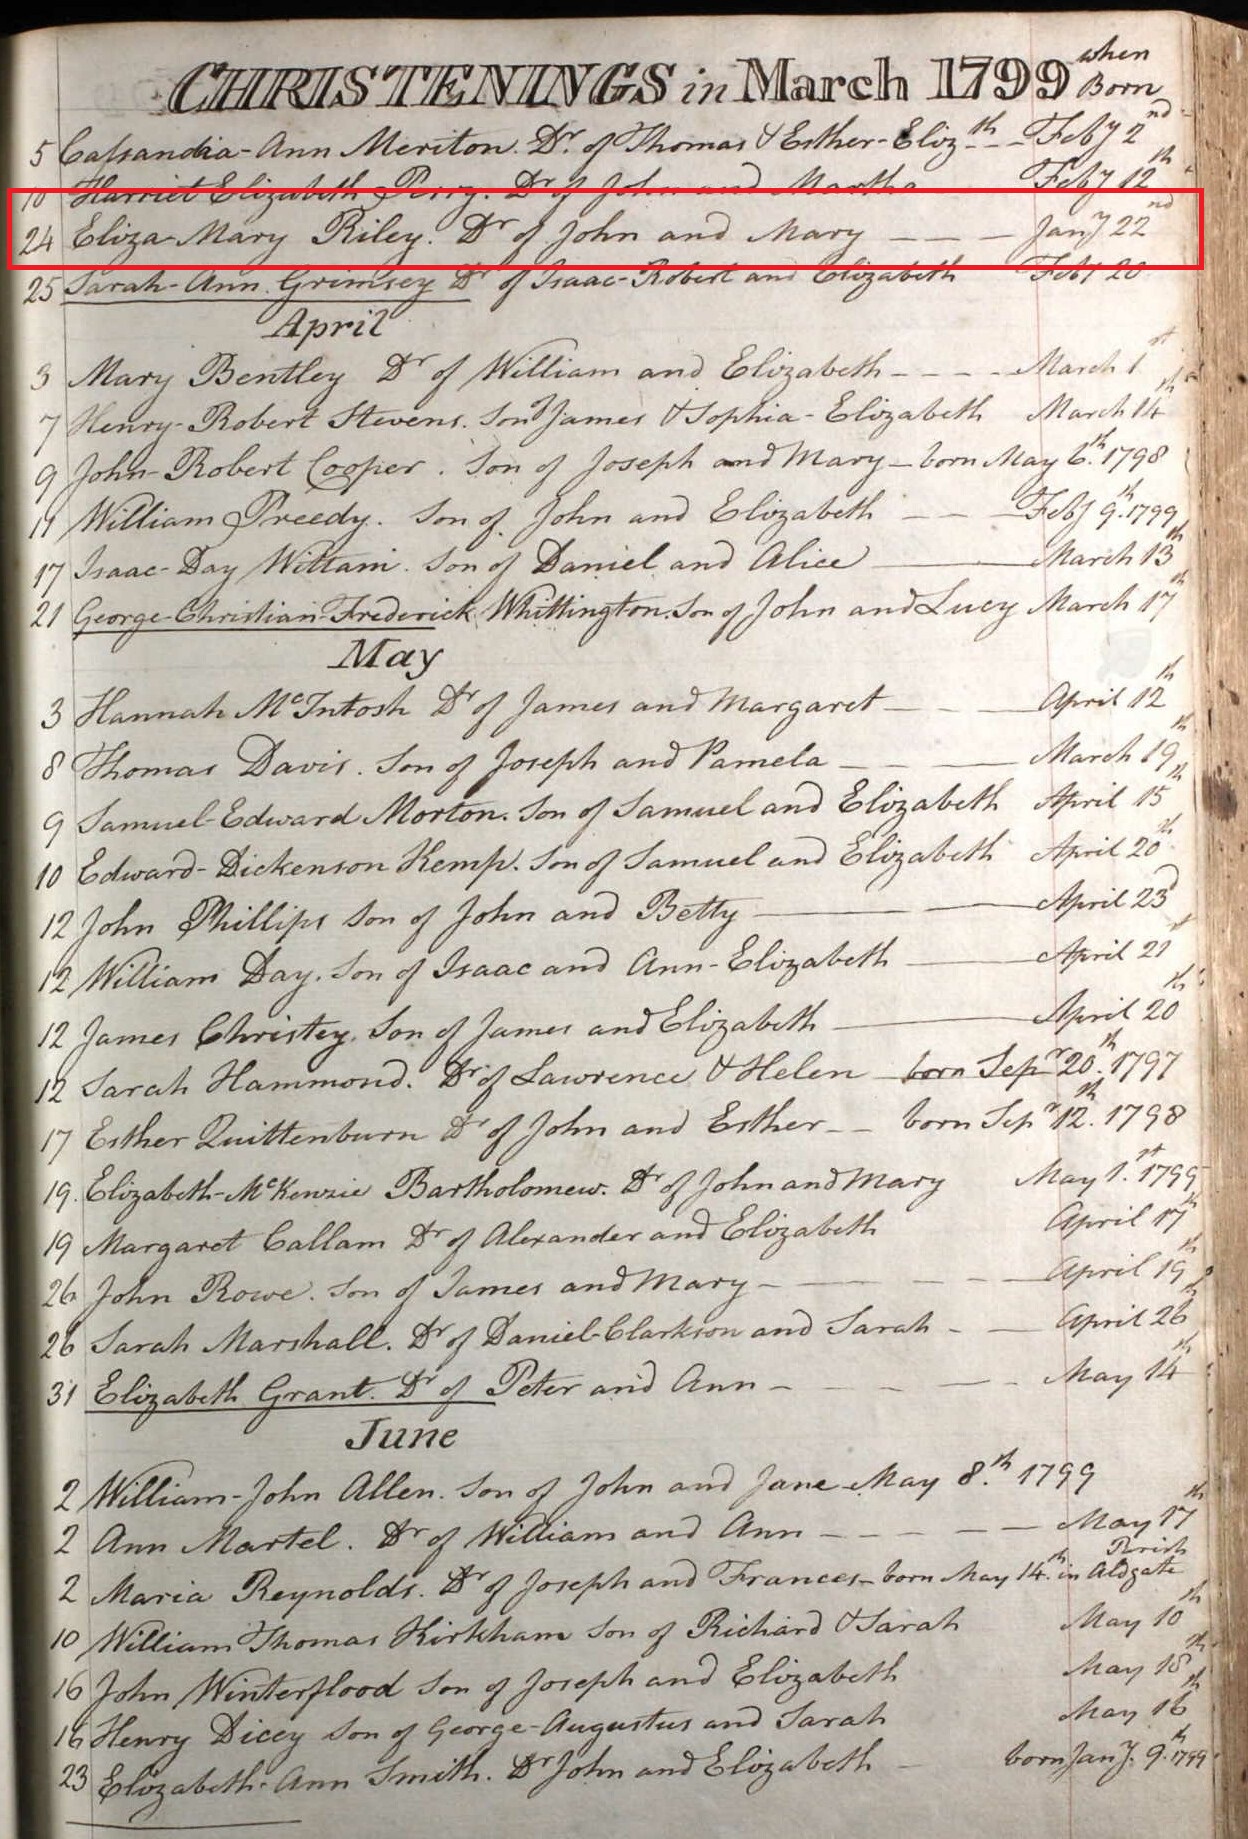 CHRISTENINGS in March 1799 when Born
5 Cassandra-Ann Meriton. Dr. of Thomas & Esther-Eliz.th Feby 2nd
10 Harriet Elizabeth Perry. Dr of John and Martha Feby 12th
24 Eliza-Mary Riley. Dr of John and Mary Jany 22nd
25 Sarah-Ann Grimsey Dr of Isaac-Robert and Elizabeth Feby 20
April
3 Mary Bentley Dr of William and Elizabeth March 1st
7 Henry-Robert Stevens. Son of James & Sophia-Elizabeth March 14th
9 John-Robert Cooper. Son of Joseph and Mary born May 6th 1798
11 William Preedy. Son of John and Elizabeth Feby 9th 1799
17 Isaac-Day Son of Daniel and Alice March 13th
21 George-Christian-Frederick Whittington. Son of John and Lucy March 17th
May
3 Hannah McIntosh Dr of James and Margaret April 12th
8 Thomas Davis. Son of Joseph and Pamela March 19th
9 Samuel-Edward Morton. Son of Samuel and Elizabeth April 15th
10 Edward-Dickenson Kemp. Son of Samuel and Elizabeth April 20th
12 John Phillips Son of John and Betty April 23d
12 William Day. Son of Isaac and Ann-Elizabeth April 21st
12 James Christey. Son of James and Elizabeth April 20th
12 Sarah Hammond. Dr of Lawrence & Helen born Sepr 20th 1797
17 Esther Quittenburn Dr of John and Esther born Sepr 12th 1798
19. Elizabeth-McKenzie Bartholomew. Dr of John and Mary May 1st 1799
19 Margaret Callam Dr of Alexander and Elizabeth April 17th
26 John Rowe. Son of James and Mary April 19th
26 Sarah Marshall. Dr of Daniel-Clarkson and Sarah April 26th
31 Elizabeth Grant. Dr of Peter and Ann May 14th
June
2 William-John Allen. Son of John and Jane May 8.th 1799
2 Ann Martel. Dr of William and Ann May 17th
2 Maria Reynolds. Dr of Joseph and Frances born May 14th in Parish Aldgate
10 William Thomas Kirkham Son of Richard & Sarah May 10th
16 John Winterflood Son of Joseph and Elizabeth May 18th
16 Henry Dicey Son of George-Augustus and Sarah May 16th
23 Elizabeth-Ann Smith. Dr John and Elizabeth born Jany. 9th 1799